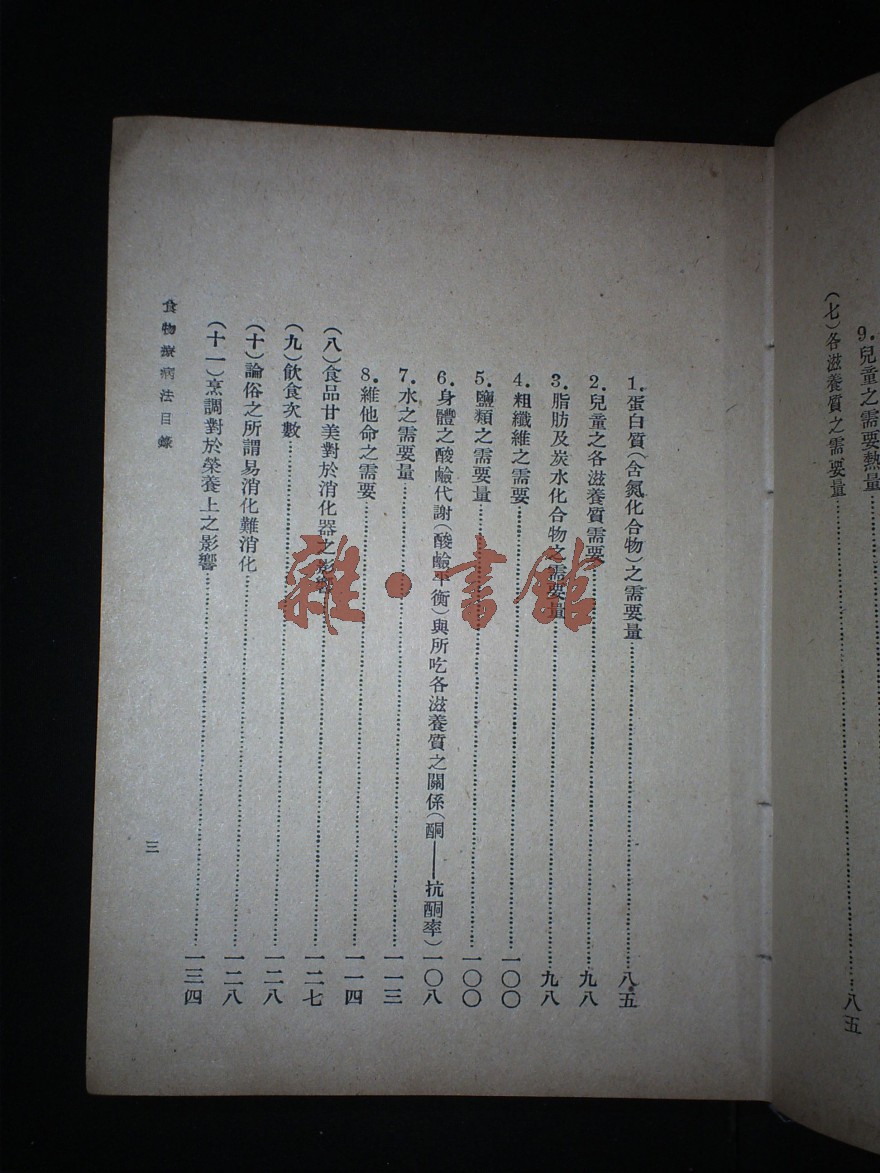 9.兒童之需要熱量
(七)各滋養質之需要量……八五
1.蛋白質(含氮化合物)之需要量……八五
2.兒童之各滋養質需要……九八
3.脂肪及炭水化合物之需要量……九八
4.粗纖維之需要……一〇〇
5.鹽類之需要量……一〇〇
6.身體之酸鹼代謝(酸鹼平衡)與所吃各滋養質之關係(酮——抗酮率)一〇八
7.水之需要量……一一三
8.維他命之需要……一一四
(八)食品甘美對於消化器之影響……一二七
(九)飲食次數……一二八
(十)論俗之所謂易消化難消化……一二八
(十一)烹調對於榮養上之影響……一三四
食物療病法目錄
三
雜·書館